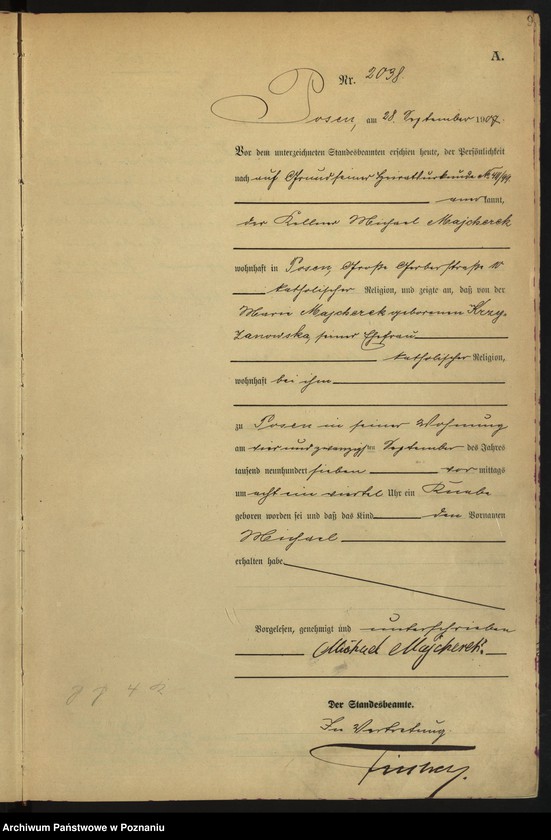 A.
Nr. 2038.
Posen, am 28. September 1907.
Vor dem unterzeichneten Standesbeamten erschien heute, der Persönlichkeit
nach auf Grund seiner Heiratsurkunde
anerkannt,
der Kellner Michael Majcherek
wohnhaft in Posen, Große Gerberstraße 10
katholischer Religion, und zeigte an, daß von der
Marie Majcherek geborenen Krzy-
żanowska, seiner Ehefrau
katholischer Religion,
wohnhaft bei ihm
zu Posen in seiner Wohnung
am vier und zwanzigsten September des Jahres
tausend neunhundert sieben vor mittags
um acht ein viertel Uhr ein Knabe
geboren worden sei und daß das Kind den Vornamen
Michael
erhalten habe.
Vorgelesen, genehmigt und unterschrieben
Michael Majcherek.
Der Standesbeamte.
In Vertretung
Archiwum Państwowe w Poznaniu